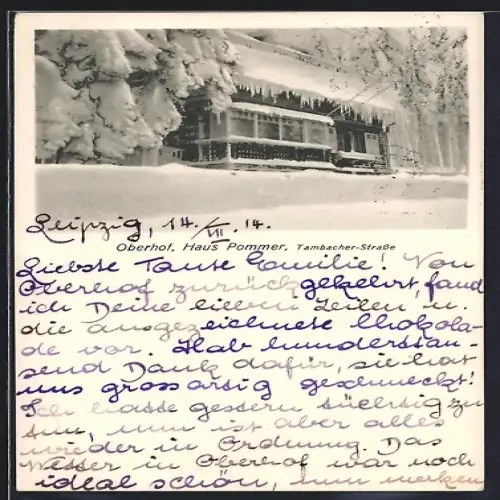 Leipzig, 14./VII. 14.
Oberhof, Haus Pommer, Tambacher-Straße
Liebste Tante Emilie! Von
Oberhof zurückgekehrt, fand
ich Deine lieben Zeilen u.
die ausgezeichnete Chokola-
de vor. Hab hunderttau-
send Dank dafür, sie hat
uns grossartig geschmeckt!
Ich hatte gestern tüchtig zu
tun, nun ist aber alles
wieder in Ordnung. Das
Wetter in Oberhof war noch
ideal schön, nun merken